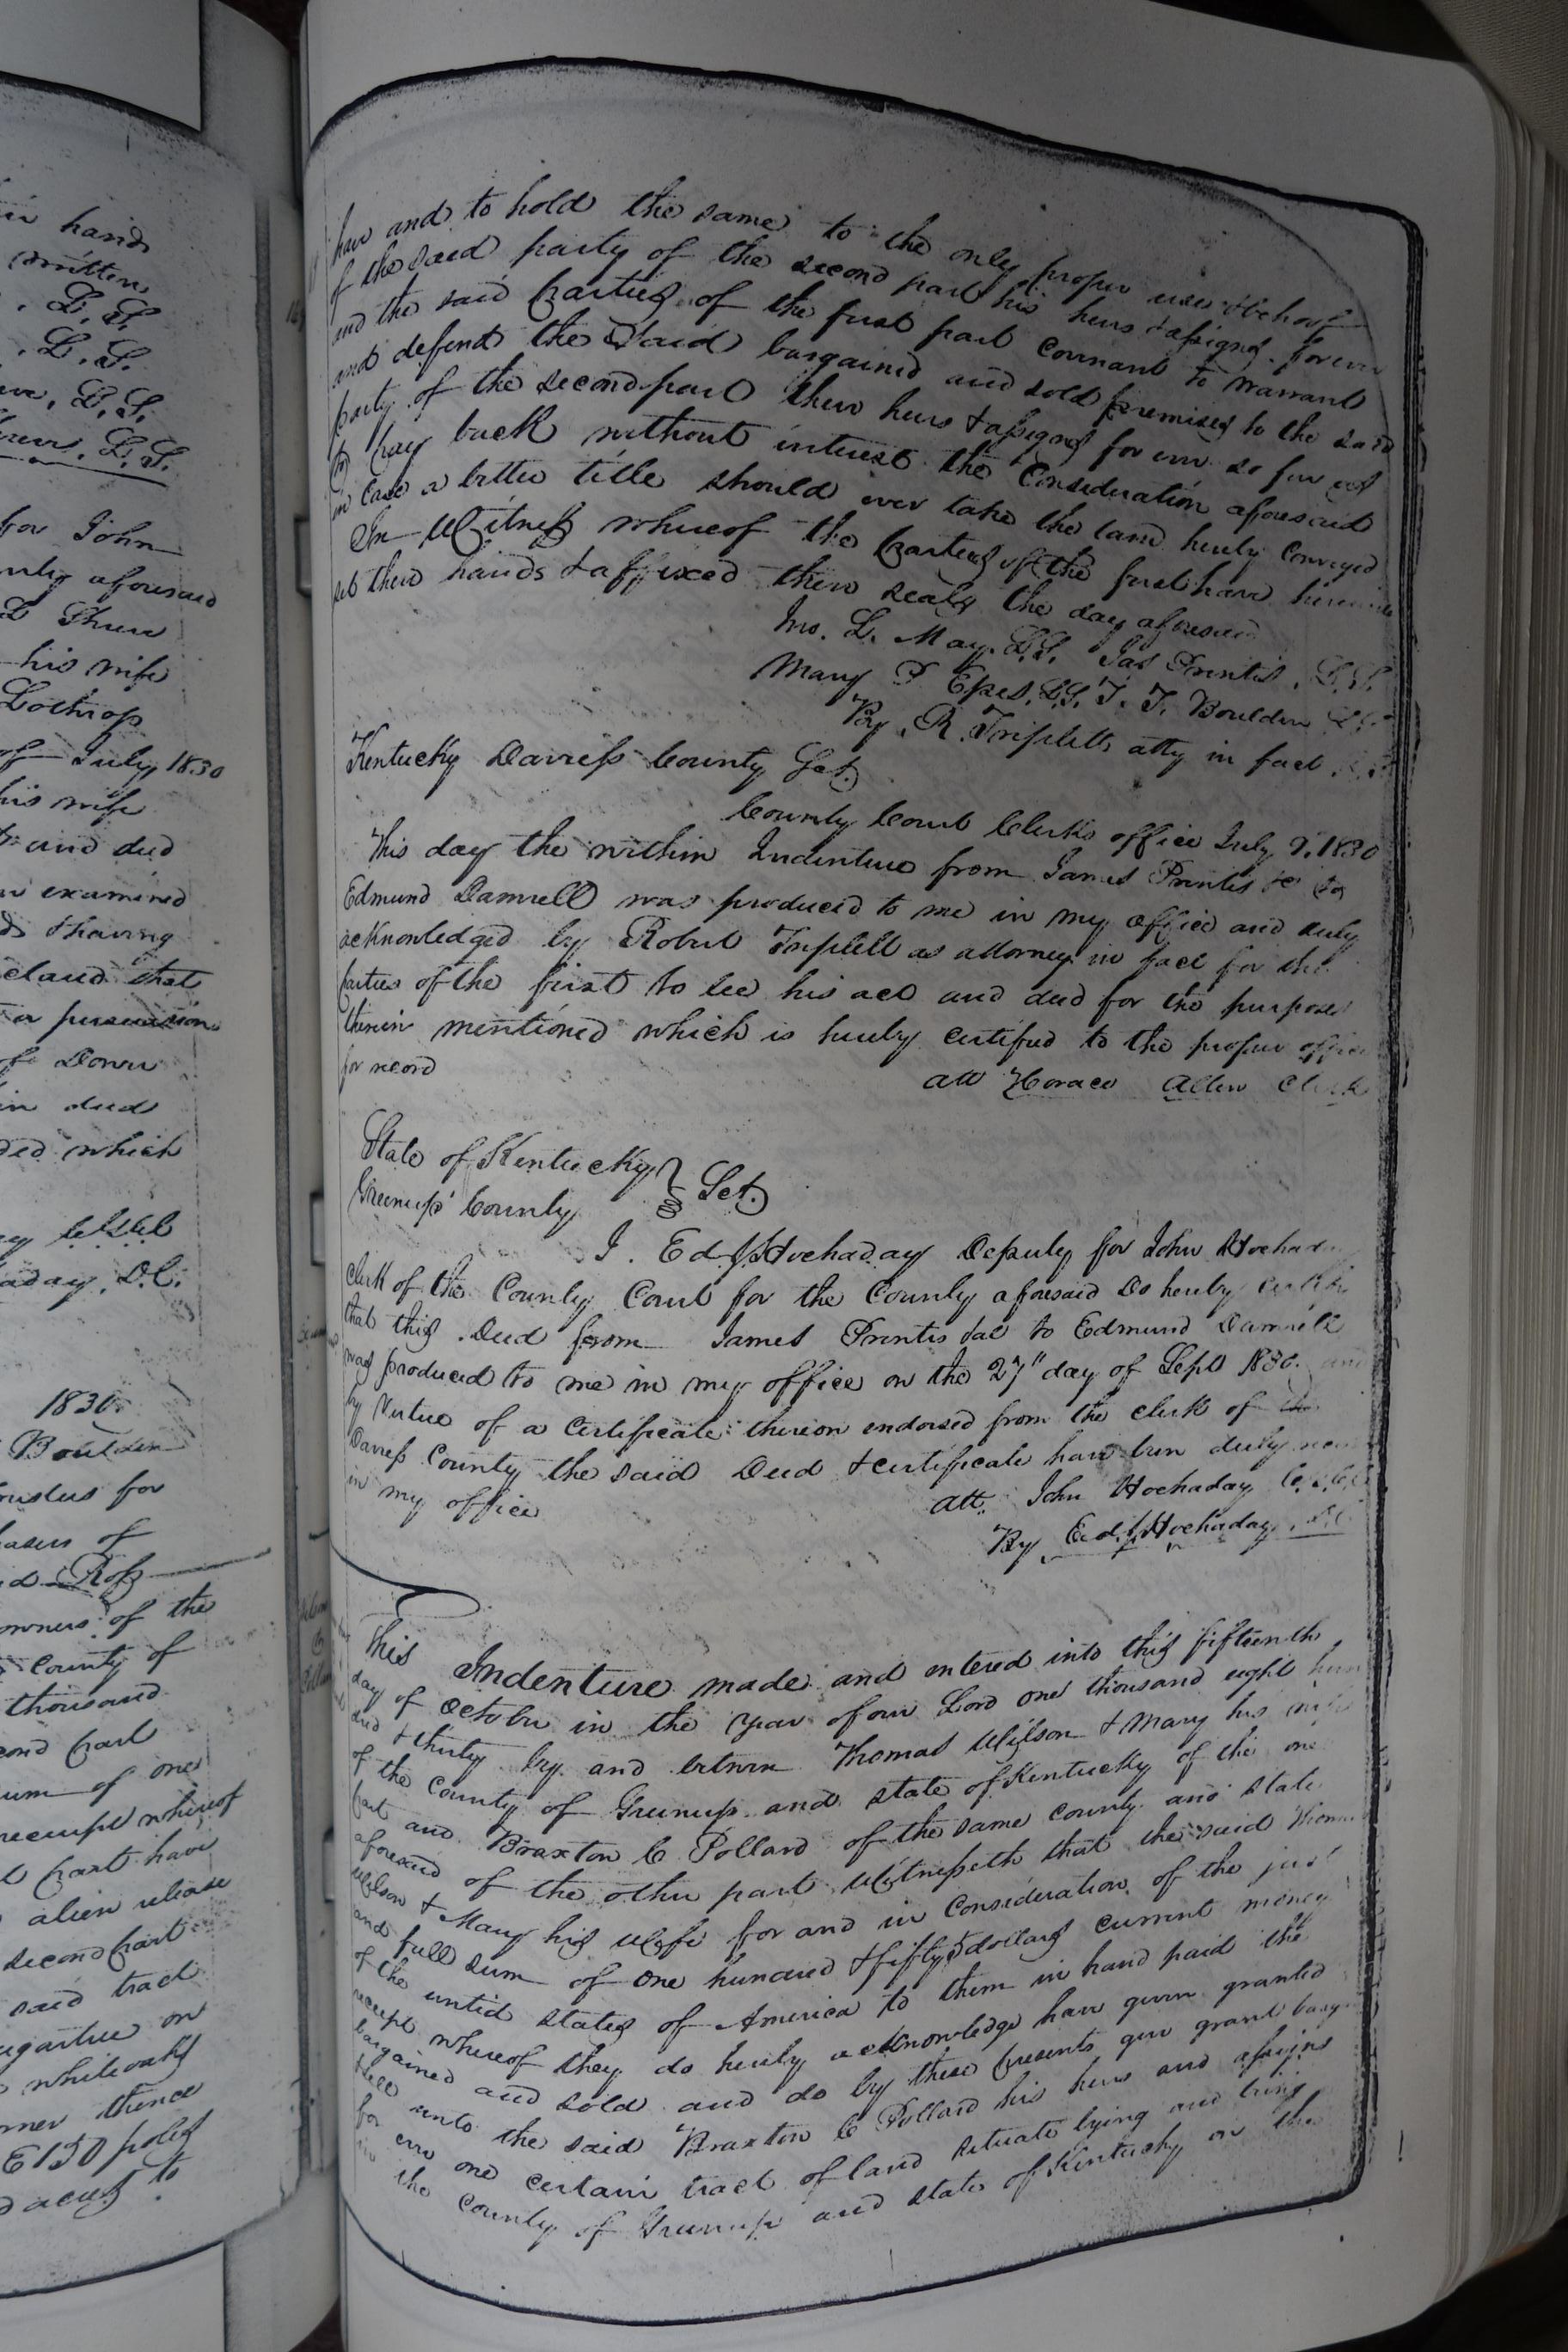 hand
written
L. S.
L. S.
L. S.
L. S.
for John
aforesaid
his wife
Lothrop
of July 1830
his wife
and deed
examined
& having
that
of Dower
in deed
which
D. C.
1830
Boulden
for
of
Ross
owners of the
County of
thousand
second part
sum of one
receipt whereof
part have
alien release
second part
said tract
sugartree on
whiteoaks
corner thence
E 150 poles
acres to
have and to hold the same to the only proper use & behoof
of the said party of the second part his heirs & assigns forever
and the said parties of the first part covenant to warrant
and defend the said bargained and sold premises to the said
party of the second part their heirs & assigns for ever so far as
to pay back without interest the Consideration aforesaid
in case a better title should ever take the land hereby conveyed
In Witness whereof the parties of the first have hereunto
set their hands & affixed their seals the day aforesaid
Jno. L. May. L.S. Jas Prentis. L.S.
Mary P Epes. L.S. T. T. Bouldin L.S.
By R. Triplett atty in fact
Kentucky Daviess County Sct.
County Court Clerks office July 9. 1830
This day the within Indenture from James Prentis &c to
Edmund Damrell was produced to me in my office and duly
acknowledged by Robert Triplett as attorney in fact for the
parties of the first to bee his act and deed for the purposes
therein mentioned which is hereby certified to the proper office
for record
att Horace Allen Clerk
State of Kentucky
Greenup County Sct.
I. Ed J Hockaday Deputy for John Hockaday
clerk of the County Court for the County aforesaid Do hereby certify
that this Deed from James Prentis &c to Edmund Damrell
was produced to me in my office on the 27" day of Sept 1830. and
by Virtue of a Certificate thereon endorsed from the clerk of
Daviess County the said Deed & certificate have been duly
in my office
att. John Hockaday
By Ed J Hockaday D.C.
This Indenture made and entered into this fifteenth
day of October in the year of our Lord one thousand eight hun
dred & thirty by and between Thomas Wilson & Mary his wife
of the County of Greenup and state of Kentucky of the one
part and Braxton C Pollard of the same county and state
aforesaid of the other part Witnesseth that the said Thomas
Wilson & Mary his Wife for and in Consideration of the just
and full sum of one hundred & fifty dollars current money
of the untid states of America to them in hand paid the
receipt whereof they do hereby acknowledge have given granted
bargained and sold and do by these presents give grant bargn
& sell unto the said Braxton C Pollard his heirs and assigns
for ever one certain tract of land situate lying and being
in the County of Greenup and state of Kentucky on the